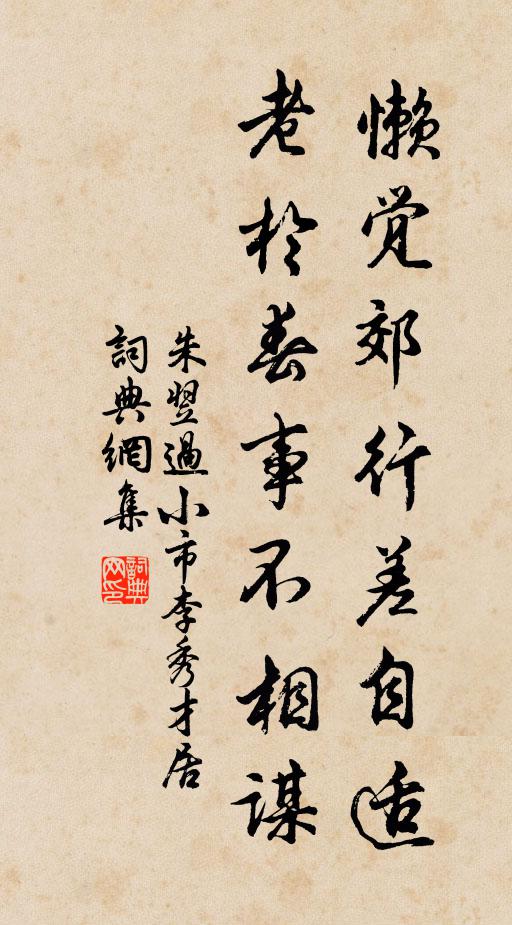 懒觉郊行差自适
老於春事不相谋
朱翌過小市李秀才居
詞典網集
詞典网印